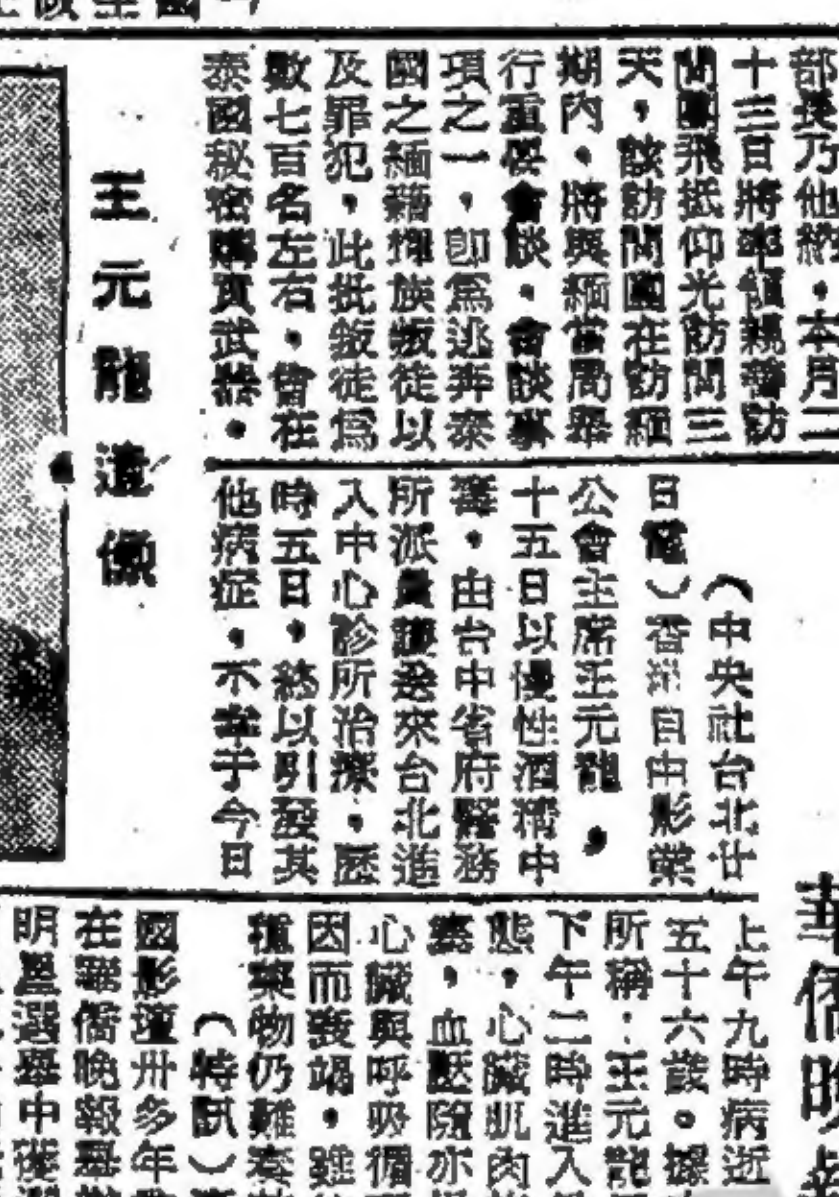 部長乃他納，本月二
十三日將率領親善訪
問團飛抵仰光訪問三
天，該訪問團在訪緬
期內，將與緬當局舉
行重要會談，會談事
項之一，即為逃奔泰
國之緬籍撣族叛徒以
及罪犯，此批叛徒為
數七百名左右，曾在
泰國秘密購買武器。
王元龍遺像
（中央社台北廿
日電）香港自由影業
公會主席王元龍，
十五日以慢性酒精中
毒，由台中省府醫務
所派員護送來台北進
入中心診所治療，歷
時五日，終以引發其
他病症，不幸于今日
上午九時病逝
五十六歲。據
所稱：王元龍
下午二時進入
態，心臟肌肉
血壓隨
心臟與呼吸循
因而發竭，雖
種藥物仍難奏
（特訊）
國影壇卅多年
在華僑晚報舉
明星選舉中
華僑晚